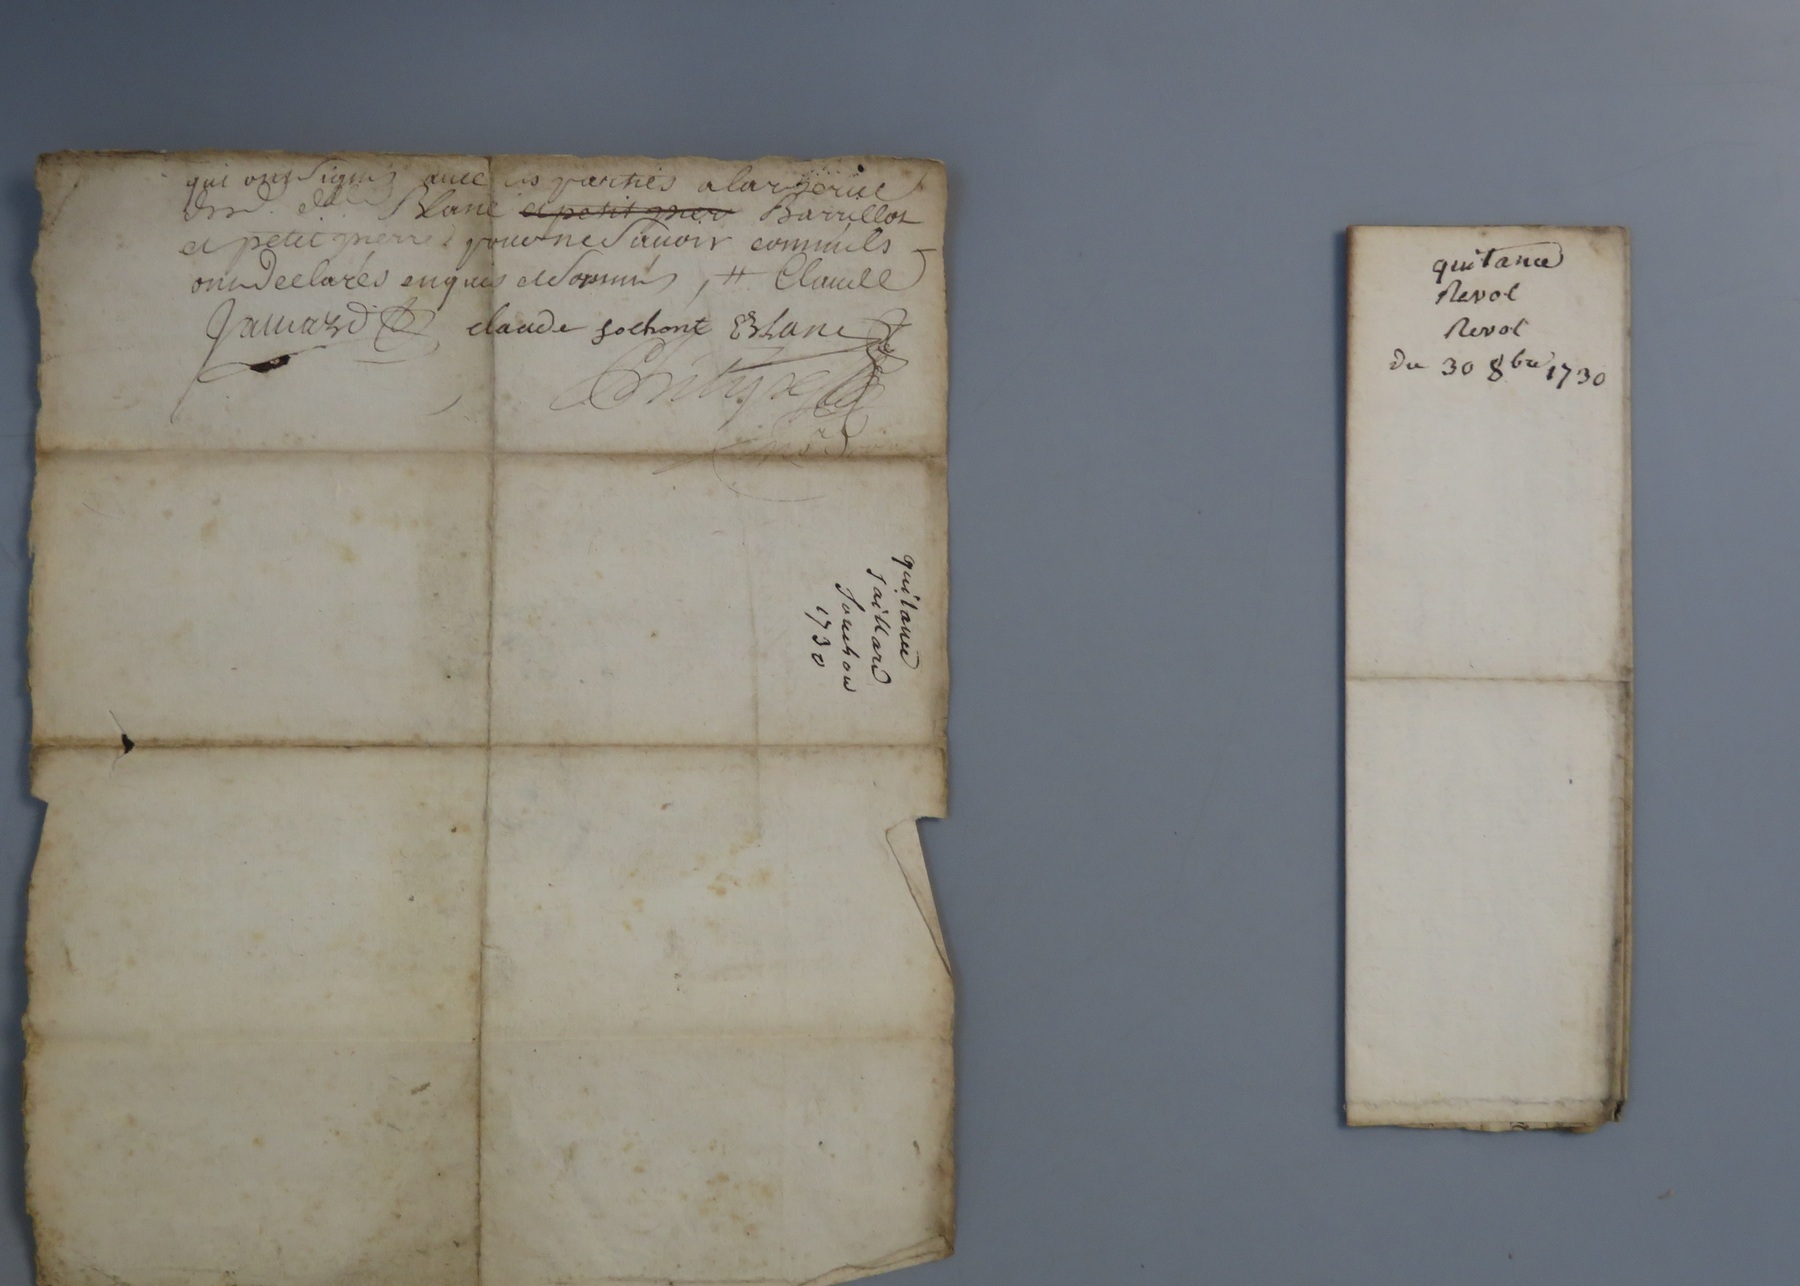 qui ont signés avec les parties a la reserve
dud. Blanc et petit pierre Barrillon
et petit pierre pour ne sçavoir comme ils
ont declarés enquis et sommés, # Claude
Claude sochont Eblanc
quitance
Jaillard
Souchon
1730
quitance
Revol
Revol
du 30 8bre 1730